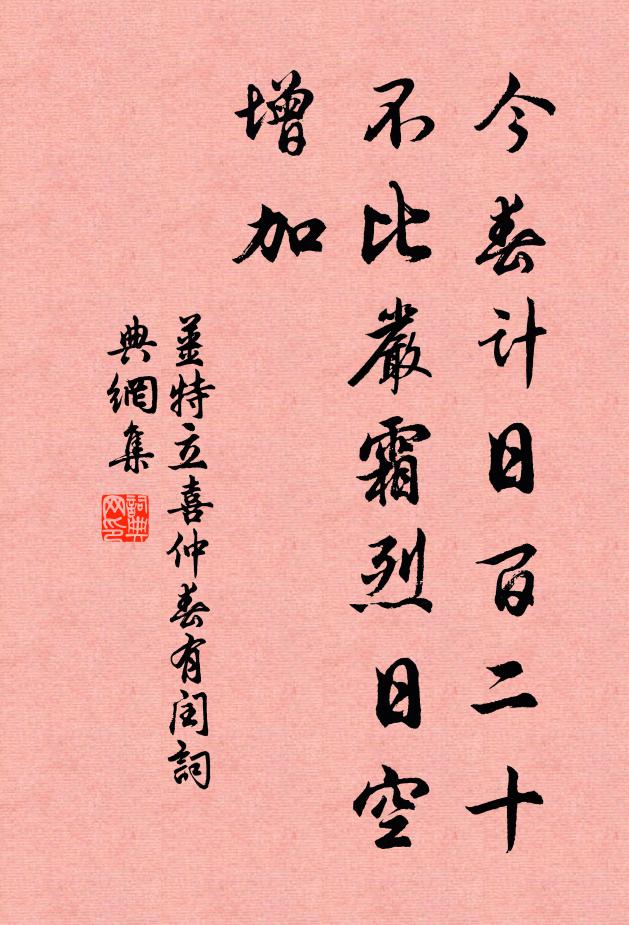 今春计日百二十
不比嚴霜烈日空
增加
薑特立喜仲春有闰詞
典網集
詞典网印